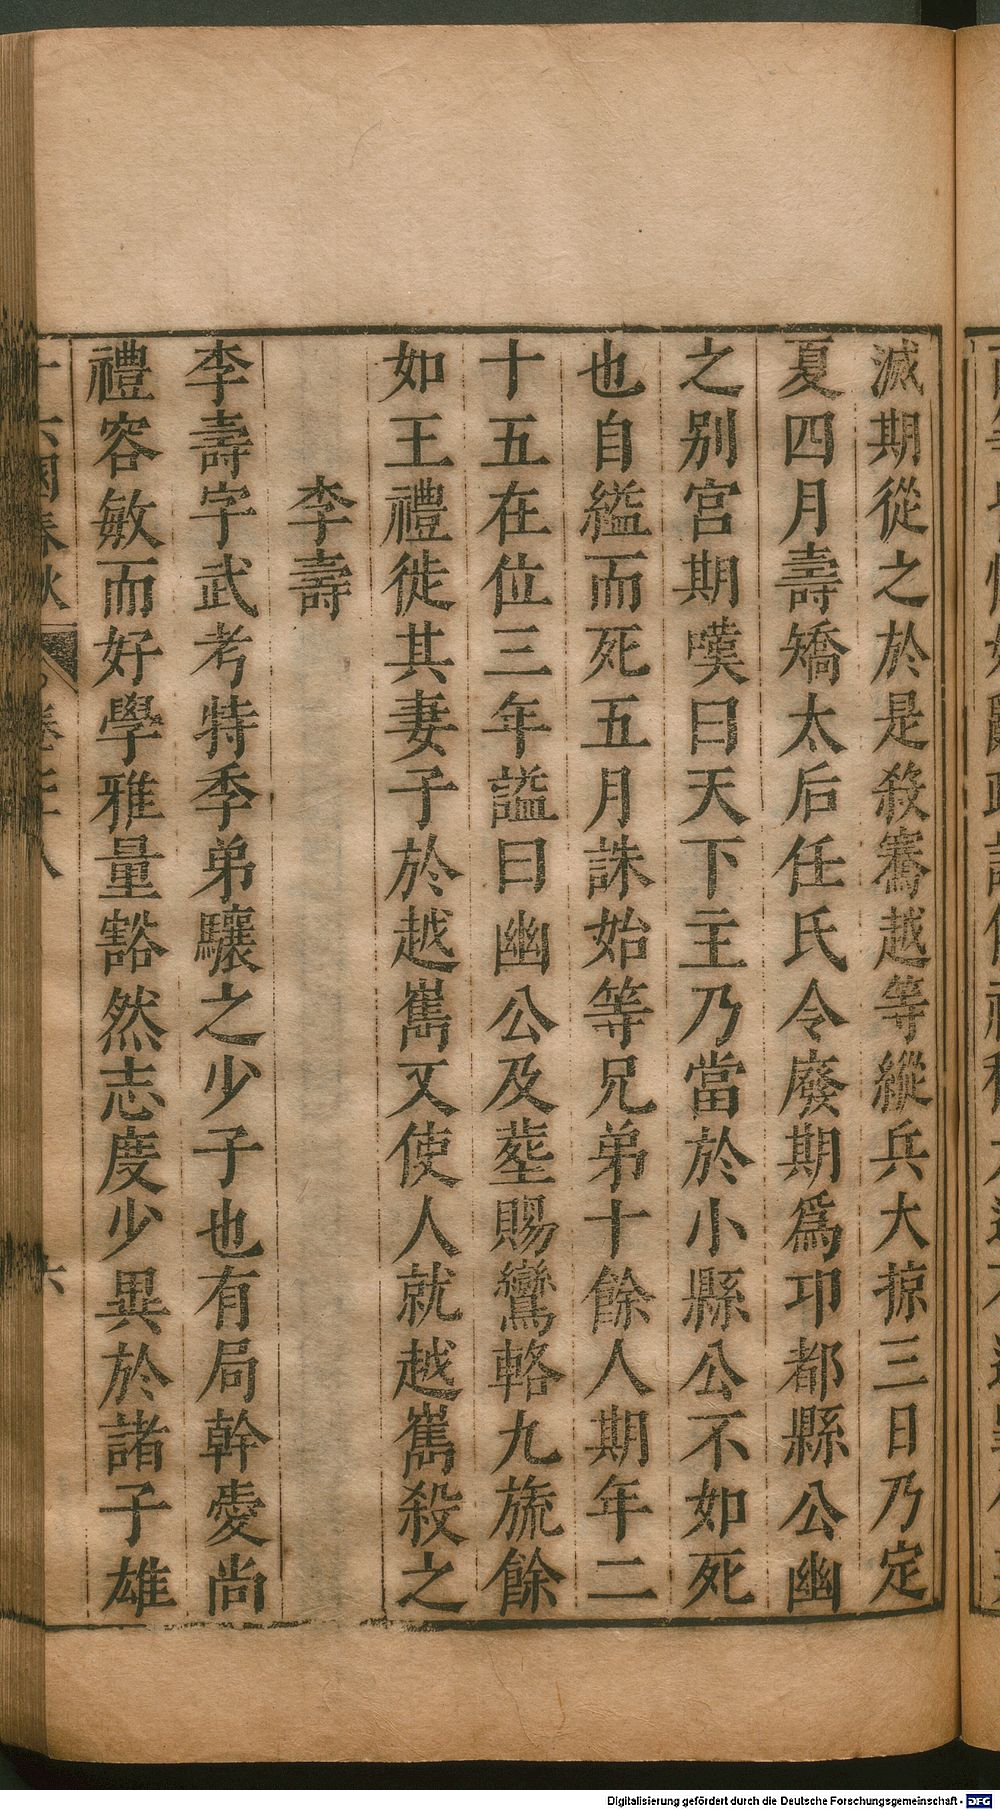 滅期從之於是殺騫越等縱兵大掠三日乃定
夏四月壽矯太后任氏令廢期爲邛都縣公幽
之别宮期嘆曰天下主乃當於小縣公不如死
也自縊而死五月誅始等兄弟十餘人期年二
十五在位三年諡曰幽公及塟賜鸞輅九旒餘
如王禮徙其妻子於越嶲又使人就越嶲殺之
李壽
李壽字武考特季弟驤之少子也有局幹愛尚
禮容敏而好學雅量豁然志度少異於諸子雄
十六國春秋 卷 八 六
Digitalisierung gefördert durch die Deutsche Forschungsgemeinschaft - DFG